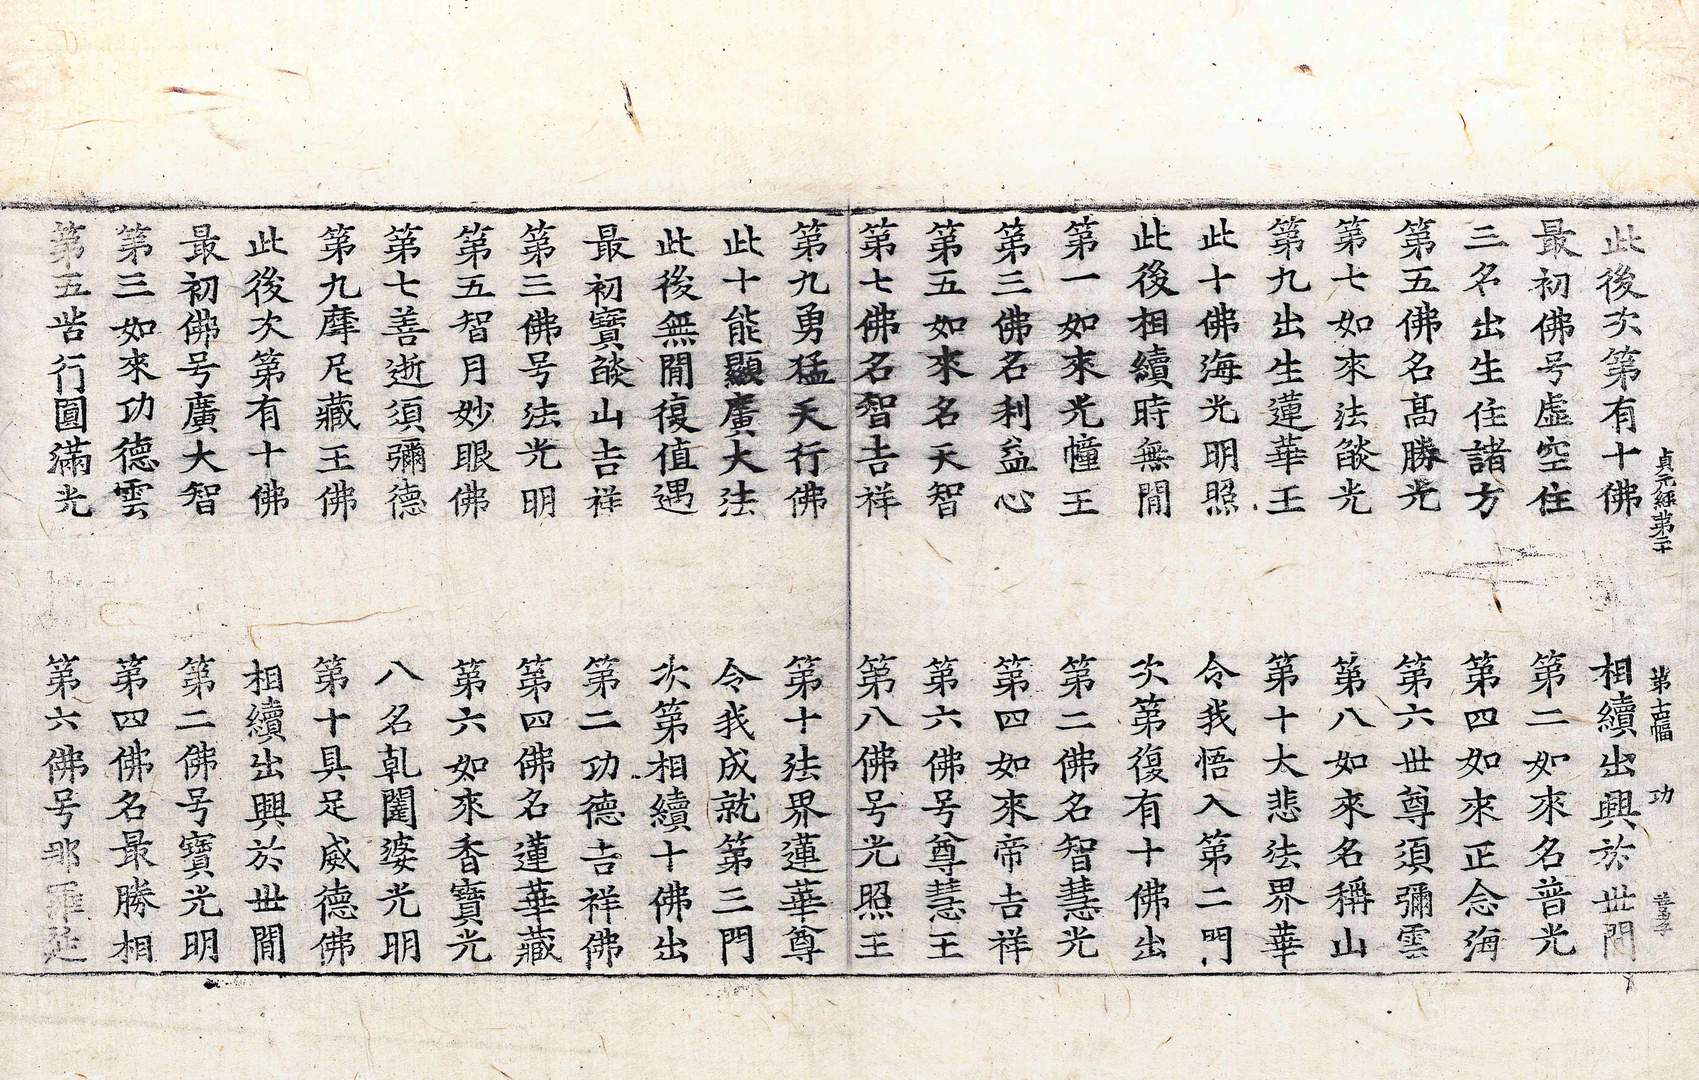 貞元經第二十 功
此後次第有十佛 相續出興於世間
最初佛号虛空住 第二如來名普光
三名出生住諸方 第四如來正念海
第五佛名髙勝光 第六世尊須彌雲
第七如來法燄光 第八如來名稱山
第九出生蓮華王 第十大悲法界華
此十佛海光明照 令我悟入第二門
此後相續時無閒 次第復有十佛出
第一如來光幢王 第二佛名智慧光
第三佛名利益心 第四如來帝吉祥
第五如來名天智 第六佛号尊慧王
第七佛名智吉祥 第八佛号光照王
第九勇猛天行佛 第十法界蓮華尊
此十能顯廣大法 令我成就第三門
此後無閒復值遇 次第相續十佛出
最初寶燄山吉祥 第二功德吉祥佛
第三佛号法光明 第四佛名蓮華藏
第五智月妙眼佛 第六如來香寶光
第七善逝須彌德 八名乹闥婆光明
第九摩尼藏王佛 第十具足威德佛
此後次第有十佛 相續出興於世閒
最初佛号廣大智 第二佛号寶光明
第三如來功德雲 第四佛名最勝相
第五行圓滿光 第六佛号那羅延